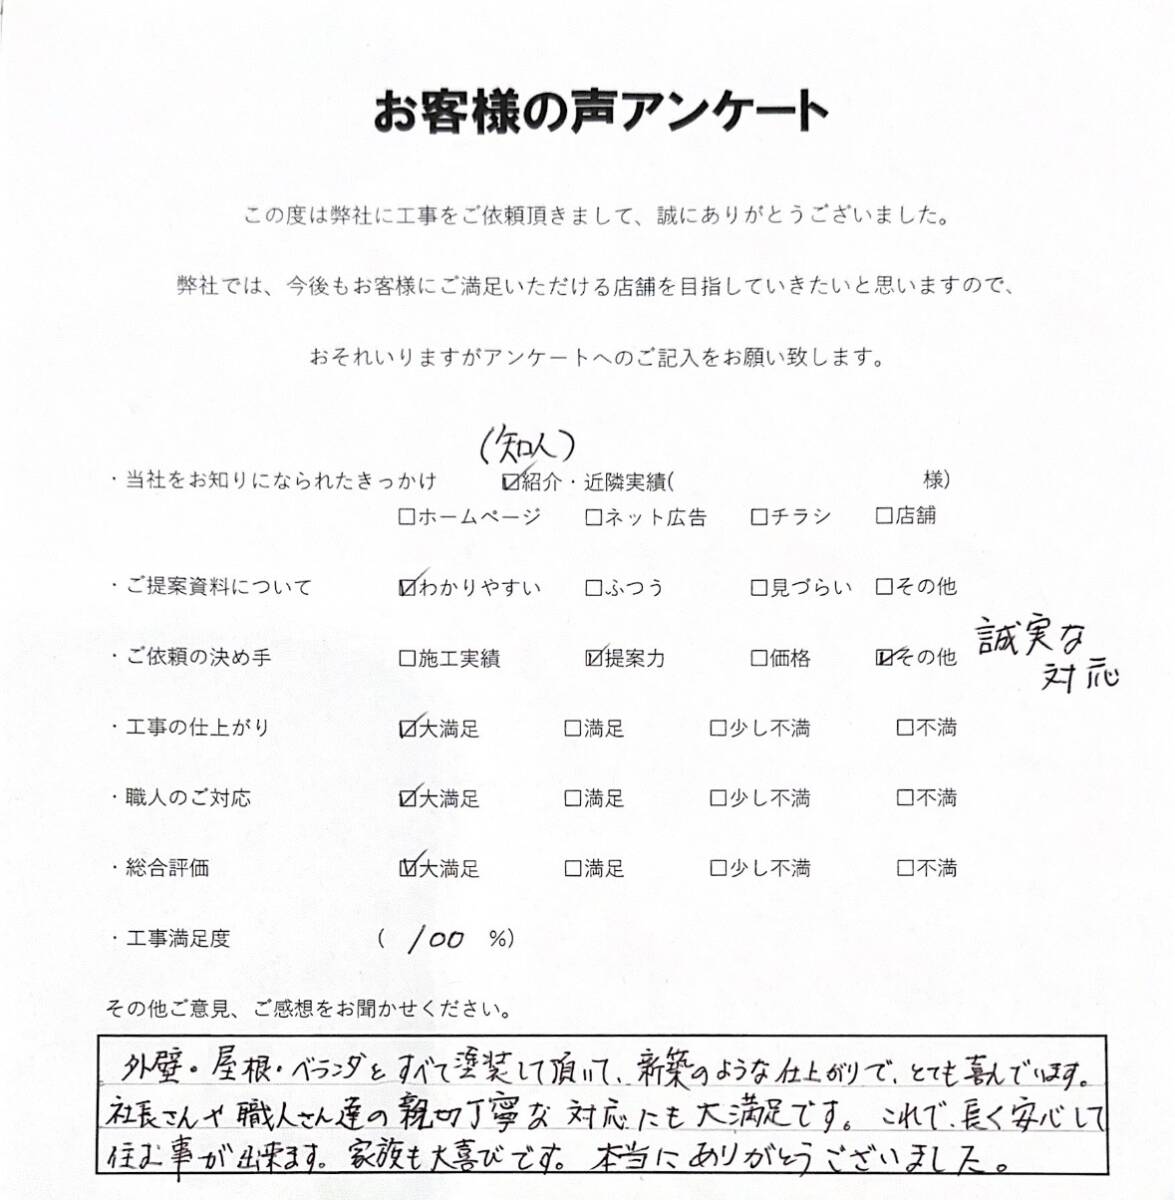 お客様の声アンケート
この度は弊社に工事をご依頼頂きまして、誠にありがとうございました。
弊社では、今後もお客様にご満足いただける店舗を目指していきたいと思いますので、
おそれいりますがアンケートへのご記入をお願い致します。
(知人)
・当社をお知りになられたきっかけ ☑紹介・近隣実績( 様)
□ホームページ □ネット広告 □チラシ □店舗
・ご提案資料について ☑わかりやすい □ふつう □見づらい □その他
・ご依頼の決め手 □施工実績 ☑提案力 □価格 ☑その他 誠実な
対応
・工事の仕上がり ☑大満足 □満足 □少し不満 □不満
・職人のご対応 ☑大満足 □満足 □少し不満 □不満
・総合評価 ☑大満足 □満足 □少し不満 □不満
・工事満足度 ( 100 %)
その他ご意見、ご感想をお聞かせください。
外壁・屋根・ベランダとすべて塗装して頂いて、新築のような仕上がりで、とても喜んでいます。
社長さんや職人さん達の親切丁寧な対応にも大満足です。これで、長く安心して
住む事が出来ます。家族も大喜びです。本当にありがとうございました。